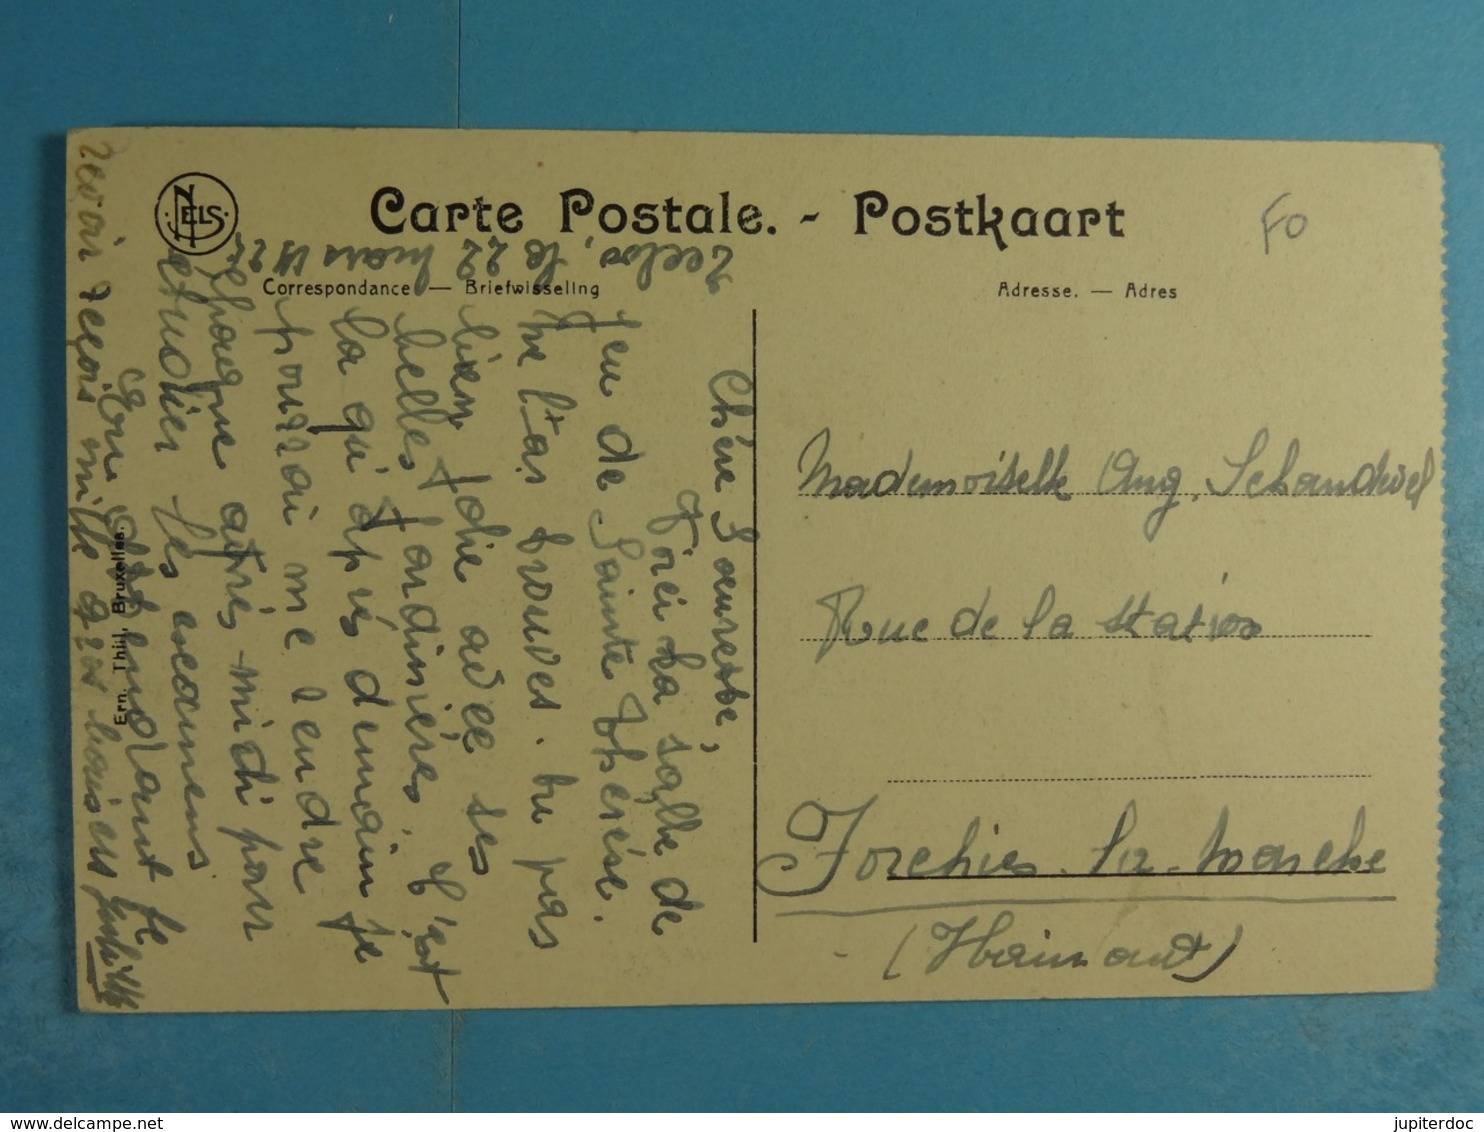 NELS
Carte Postale. - Postkaart
Fo
Correspondance — Briefwisseling
Adresse. — Adres
le 22 mars 192
Chère Soeurette,
Voici la salle de
jeu de Sainte Thérèse.
Ne l'as trouves-tu pas
bien jolie avec ses
belles jardinières. C'est
là qu'après demain je
pourrai me rendre
chaque après-midi pour
étudier les examens
En attendant le
revoir reçois mille gros baisers
Ern. Thill, Bruxelles.
Mademoiselle Ang. Schandevel
Rue de la Station
Forchies-la-Marche
(Hainaut)
jupiterdoc